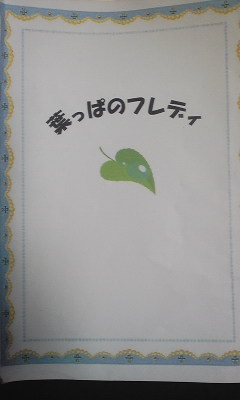 葉っぱのフレディ